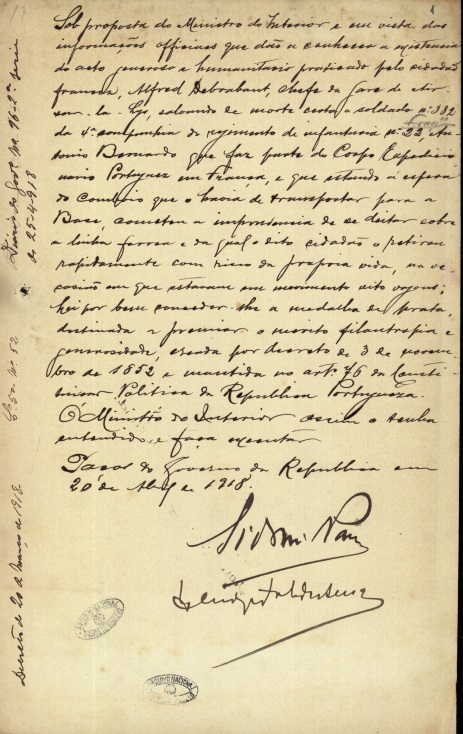 1
Sob proposta do Ministro do Interior e em vista das
informações officiaes que dão a conhecer a existencia
do acto generoso e humanitario praticado pelo cidadão
francez, Alfred Debrabant, Chefe da gare de
sur-la-Lys, salvando de morte certa, o soldado nº 382
da 4ª companhia do regimento de infantaria nº 22, An-
tonio Bernardo que faz parte do Corpo Expedicio-
nario Portuguez em França, e que estando á espera
do comboio que o havia de transportar para a
Base, cometeu a imprudencia de se deitar sobre
a linha ferrea e da qual o dito cidadão o retirou
rapidamente com risco da propria vida, na oc-
casião em que estavam em movimento oito vagons;
hei por bem conceder-lhe a medalha de prata,
destinada a premiar o merito, filantropia e
generosidade, creada por decreto de 3 de novem-
bro de 1852 e mantida no artº 76 da Consti-
tuição Politica da Republica Portugueza.
O Ministro do Interior assim o tenha
entendido e faça executar
Paços do Governo da Republica em
20 de Abril de 1918.
Sidonio Paes
Diario do Govº Nº 96-2ª serie
de 25-4-918
Nº 52
Decreto de 20 de de 1918
ARQUIVO NACIONAL
ARQUIVO NACIONAL